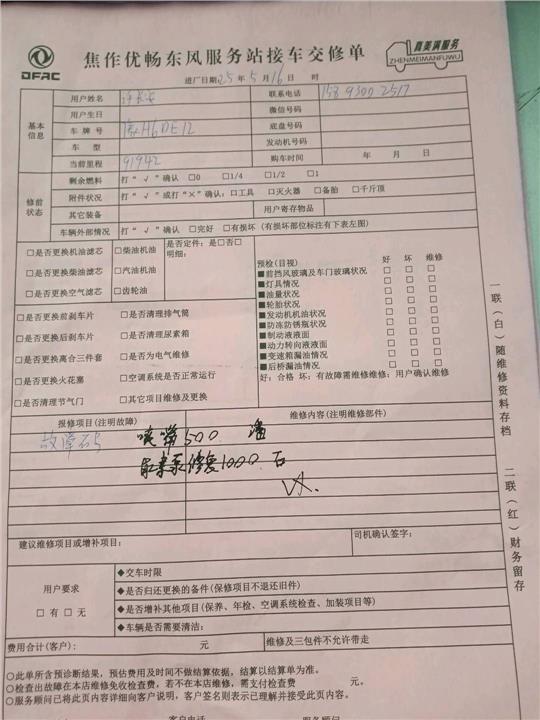 DFAC
焦作优畅东风服务站接车交修单
真美满服务
ZHENMEIMANFUWU
进厂日期25年5月16日 时
基本信息
用户姓名
联系电话 158 9300 2517
用户生日
微信号码
车牌号 豫H6DE12
底盘号码
车型
发动机号码
当前里程 91942
购车时间 年 月 日
修前状态
剩余燃料 打“√”确认 □0 □1/4 □1/2 □1
附件状况 打“√”或打“×”确认:□工具 □灭火器 □备胎 □千斤顶
其它装备
用户寄存物品
车辆外部情况 打“√”确认 □完好 □有损坏(有损坏部位标注有下表左图)
□是否更换机油滤芯 □柴油机油
□是否更换柴油滤芯 □汽油机油
□是否更换空气滤芯 □齿轮油
是否定件:是□否□
明细:
□是否更换前刹车片 □是否清理排气筒
□是否更换后刹车片 □是否清理尿素箱
□是否更换离合三件套 □是否为电气维修
□是否更换火花塞 □空调系统是否正常运行
□是否清理节气门 □其它项目维修及更换
预检(目视) 好 坏 维修
■前挡风玻璃及车门玻璃状况 □ □ □
■灯具情况 □ □ □
■油量状况 □ □ □
■轮胎状况 □ □ □
■发动机机油状况 □ □ □
■防冻防锈瓶状况 □ □ □
■制动液液面 □ □ □
■动力转向液液面 □ □ □
■变速箱漏油情况 □ □ □
■后桥漏油情况 □ □ □
好:合格 坏:有故障需维修维修:用户确认维修
报修项目(注明故障)
维修内容(注明维修部件)
故障码
喷嘴500
尿素泵修复1000
建议维修项目或增补项目:
司机确认签字:
用户要求
□有 □无
◆交车时限
◆是否归还更换的备件(保修项目不退还旧件)
◆是否增补其他项目(保养、年检、空调系统检查、加装项目等)
◆车辆是否需要清洁:
费用合计(客户): 元
维修及三包件不允许带走
○此单所含预诊断结果,预估费用及时间不做结算依据,结算以结算单为准。
○检查出故障在本店维修免收检查费,若不在本店维修,需支付检查费 元。
○服务顾问已将此页内容详细向客户说明,客户签名则表示已理解并接受此页内容。
客户电话
服务顾问
一联(白)随维修资料存档
二联(红)财务留存